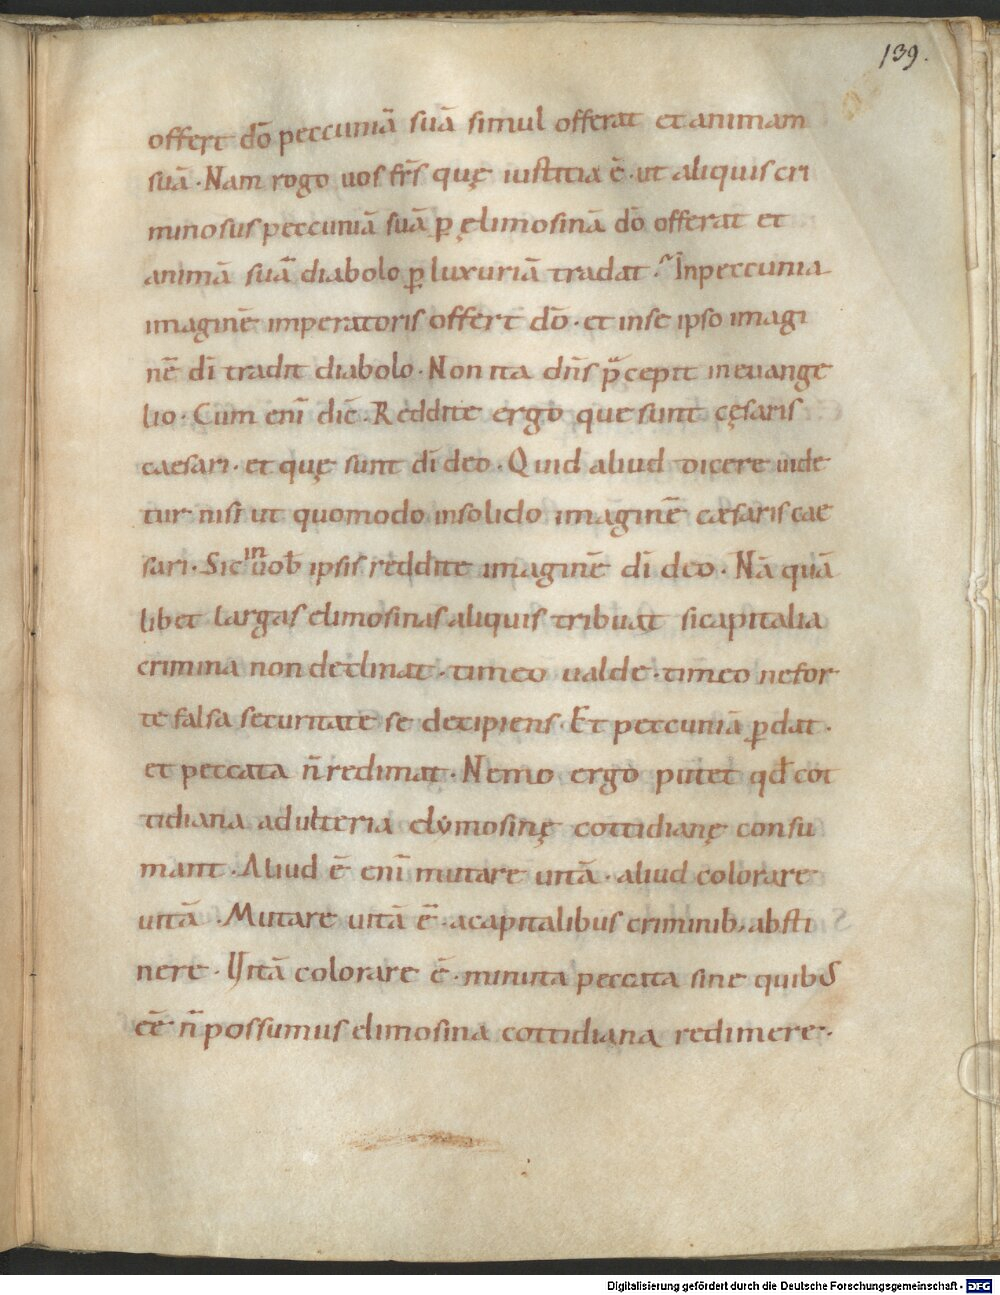 139.
offert dō peccuniā suā simul offerat et animam
suā · Nam rogo uos fr̄s quę iustitia ē · ut aliquis cri
minosus peccuniā suā ꝑ ęlimosinā dō offerat et
animā suā diabolo ꝑ luxuriā tradat · In peccunia
imaginē imperatoris offert dō · et in se ipso imagi
nē dī tradit diabolo · Non ita dn̄s p̄cepit in euange
lio · Cum enī dic̄ · Reddite ergo que sunt cęsaris
caesari · et quę sunt dī deo · Quid aliud dicere uide
tur nisi ut quomodo in solido imaginē cæsaris cae
sari · Sic in uob̄ ipsis reddite imaginē dī deo · Nā quā
libet largas elimosinas aliquis tribuat si capitalia
crimina non declinat · timeo ualde · timeo ne for
te falsa securitate se decipiens · Et peccuniā ꝑdat ·
et peccata n̄ redimat · Nemo ergo putet qd̄ cot
tidiana adulteria elymosinę cottidianę consu
mant · Aliud ē enī mutare uitā · aliud colorare
uitā · Mutare uitā ē · a capitalibus criminib; absti
nere · Vitā colorare ē · minuta peccata sine quibus
eē n̄ possumus elimosina cottidiana redimere ·
Digitalisierung gefördert durch die Deutsche Forschungsgemeinschaft - DFG